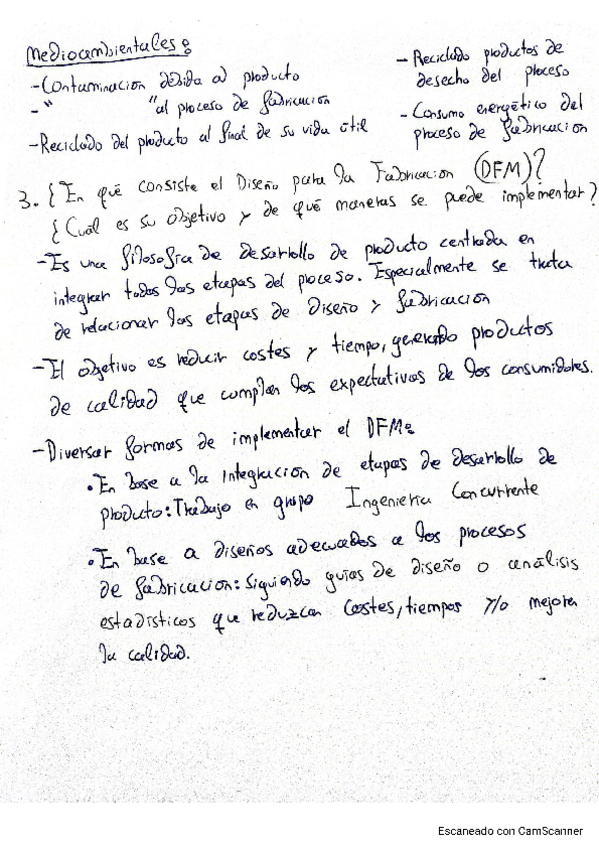 Medioambientales:
- Contaminación debida al producto
- " " al proceso de fabricación
- Reciclado del producto al final de su vida útil
- Reciclado productos de
desecho del proceso
- Consumo energético del
proceso de fabricación
3. ¿En qué consiste el Diseño para la Fabricación (DFM)?
¿Cuál es su objetivo y de qué maneras se puede implementar?
- Es una filosofía de desarrollo de producto centrada en
integrar todas las etapas del proceso. Especialmente se trata
de relacionar las etapas de Diseño y fabricación
- El objetivo es reducir costes y tiempo, generando productos
de calidad que cumplan las expectativas de los consumidores.
- Diversas formas de implementar el DFM:
• En base a la integración de etapas de desarrollo de
producto: Trabajo en grupo Ingeniería Concurrente
• En base a diseños adecuados a los procesos
de fabricación: Siguiendo guías de diseño o análisis
estadísticos que reduzcan costes, tiempos y/o mejoren
la calidad.
Escaneado con CamScanner